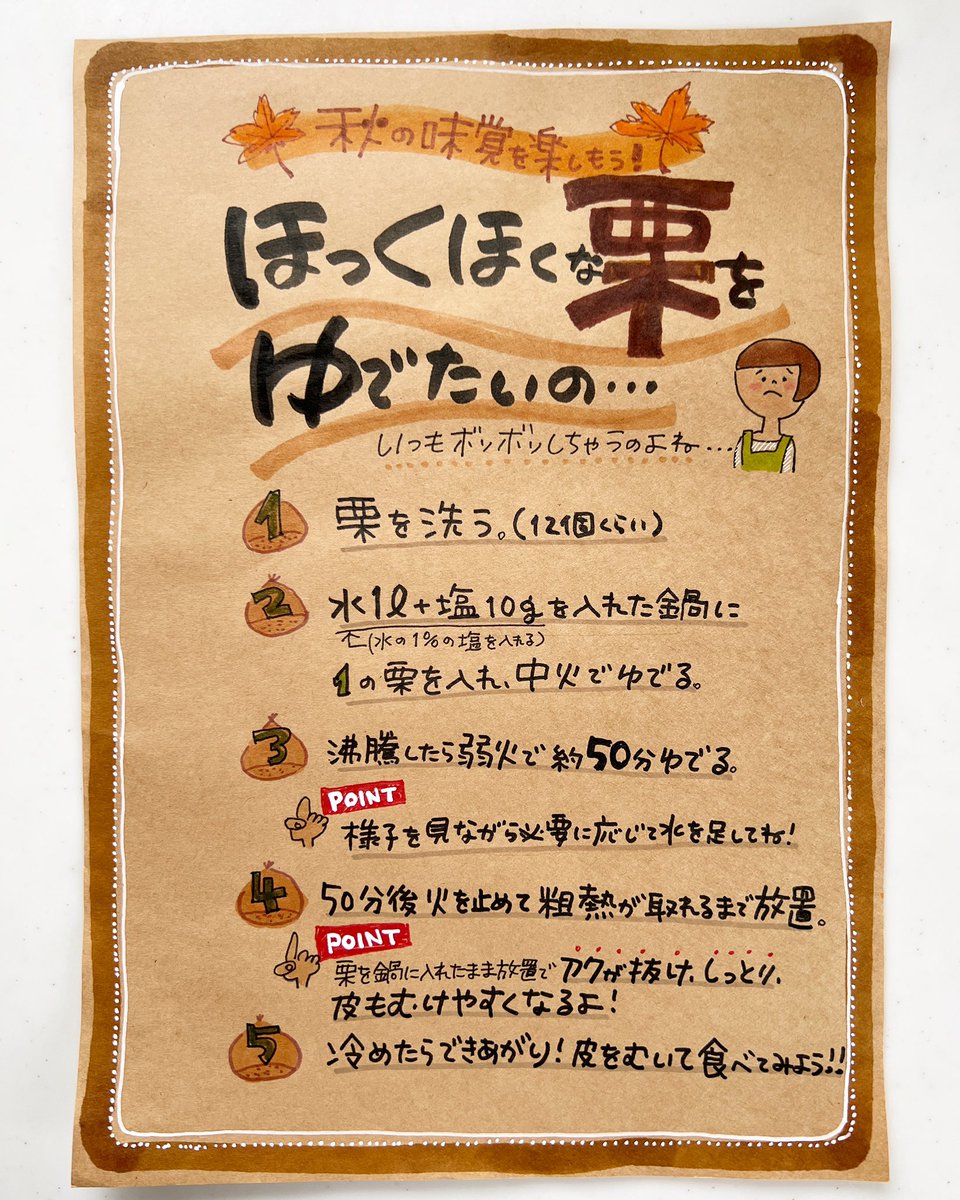 秋の味覚を楽しもう!
ほっくほくな栗を
ゆでたいの…
いつもボソボソしちゃうのよね…
1 栗を洗う。(12個くらい)
2 水1ℓ+塩10gを入れた鍋に
(水の1%の塩を入れる)
1の栗を入れ、中火でゆでる。
3 沸騰したら弱火で約50分ゆでる。
POINT
様子を見ながら必要に応じて水を足してね!
4 50分後火を止めて粗熱が取れるまで放置。
POINT
栗を鍋に入れたまま放置でアクが抜け、しっとり、
皮もむけやすくなるよ!
5 冷めたらできあがり!皮をむいて食べてみよう!!